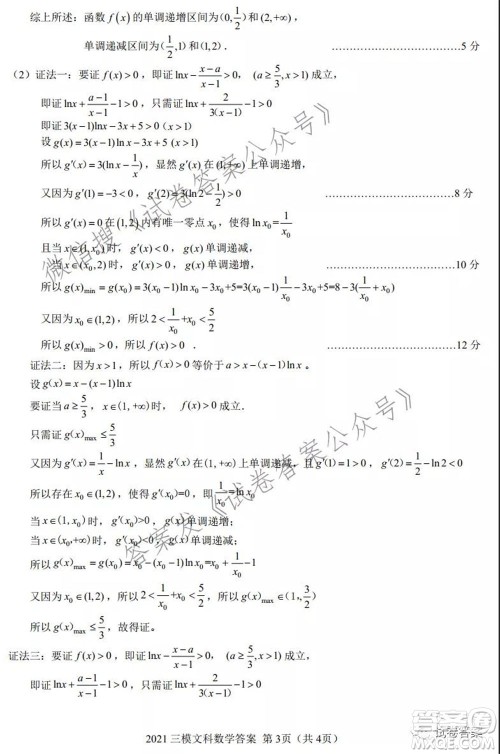 综上所述：函数 f(x) 的单调递增区间为(0,1/2)和(2,+∞)，
单调递减区间为(1/2,1)和(1,2)． …………………………5 分
（2）证法一：要证 f(x)>0，即证 lnx-(x-a)/(x-1)>0，(a≥5/3,x>1)成立，
即证 lnx+(a-1)/(x-1)-1>0，只需证 lnx+2/(3(x-1))-1>0
即证 3(x-1)lnx-3x+5>0 (x>1)
设 g(x)=3(x-1)lnx-3x+5
所以 g′(x)=3(lnx-1/x)，显然 g′(x)在(1,+∞)上单调递增，
又因为 g′(1)=-3<0，g′(2)=3(ln2-1/2)>0 …………………………8 分
所以 g′(x) 在(1,2)内有唯一零点 x₀，使得 lnx₀=1/x₀
且当 x∈(1,x₀)时，g′(x)<0，g(x)单调递减，
当 x∈(x₀,2)时，g′(x)>0，g(x)单调递增， …………………………10 分
所以 g(x)min=g(x₀)=3(x₀-1)lnx₀-3x₀+5=3(x₀-1)1/x₀-3x₀+5=8-3(1/x₀+x₀)
又因为 x₀∈(1,2)，所以 2<1/x₀+x₀<5/2
所以 g(x)min>0，所以 f(x)>0 ． …………………………12 分
证法二：因为 x>1，所以 f(x)>0 等价于 a>x-(x-1)lnx
设 g(x)=x-(x-1)lnx
要证当 a≥5/3，x∈(1,+∞)时，f(x)>0 成立．
只需证 g(x)max≤5/3
又因为 g′(x)=1/x-lnx，显然 g′(x)在(1,+∞)上单调递减，且 g′(1)=1>0，g′(2)=1/2-ln2<0
所以存在 x₀∈(1,2)，使得 g′(x₀)=0，即 1/x₀=lnx₀
当 x∈(1,x₀)时，g′(x)>0，g(x)单调递增；
当 x∈(x₀,+∞)时，g′(x)<0，g(x)单调递减；
所以 g(x)max=g(x₀)=x₀-(x₀-1)lnx₀=x₀+1/x₀-1
又因为 x₀∈(1,2)，所以 2<1/x₀+x₀<5/2，所以 g(x)max∈(1,3/2)
所以 g(x)max≤5/3，故得证。
证法三：要证 f(x)>0，即证 lnx-(x-a)/(x-1)>0，(a≥5/3,x>1)成立，
即证 lnx+(a-1)/(x-1)-1>0，只需证 lnx+2/(3(x-1))-1>0
2021 三模文科数学答案 第 3页（共 4页）
微信搜《试卷答案公众号》
答案发《试卷答案公众号》
试卷答案